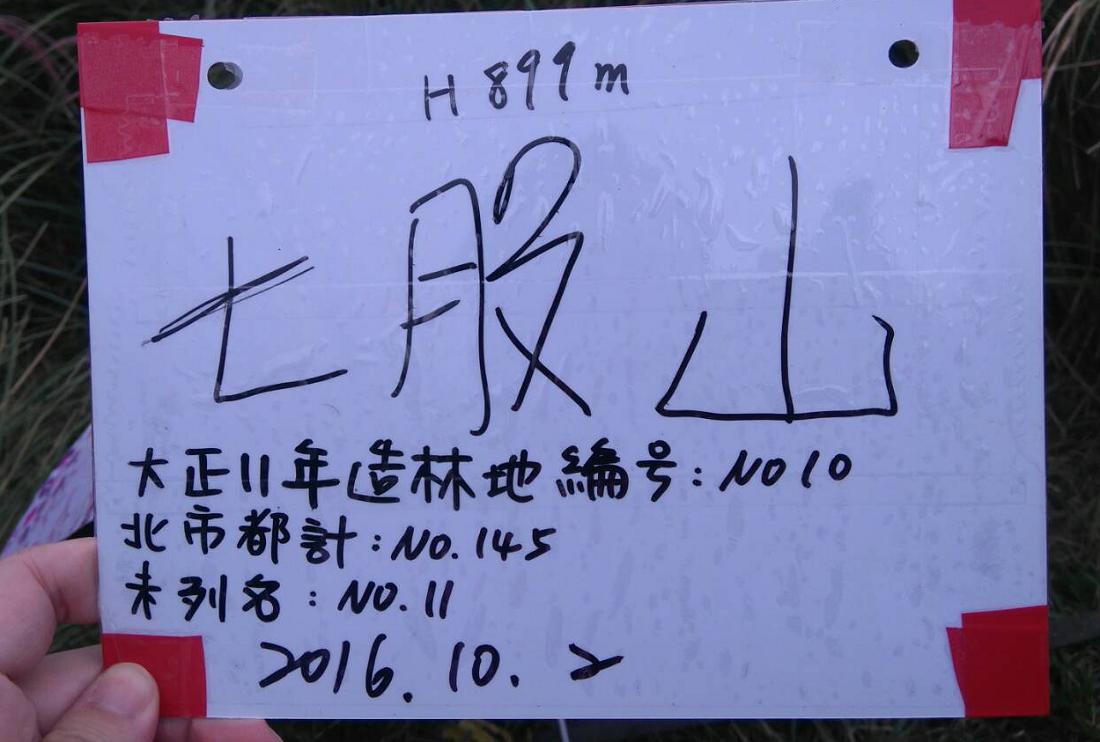 H 899 m
七股山
大正11年造林地編号:NO10
北市都計:NO.145
未列名:NO.11
2016.10.2